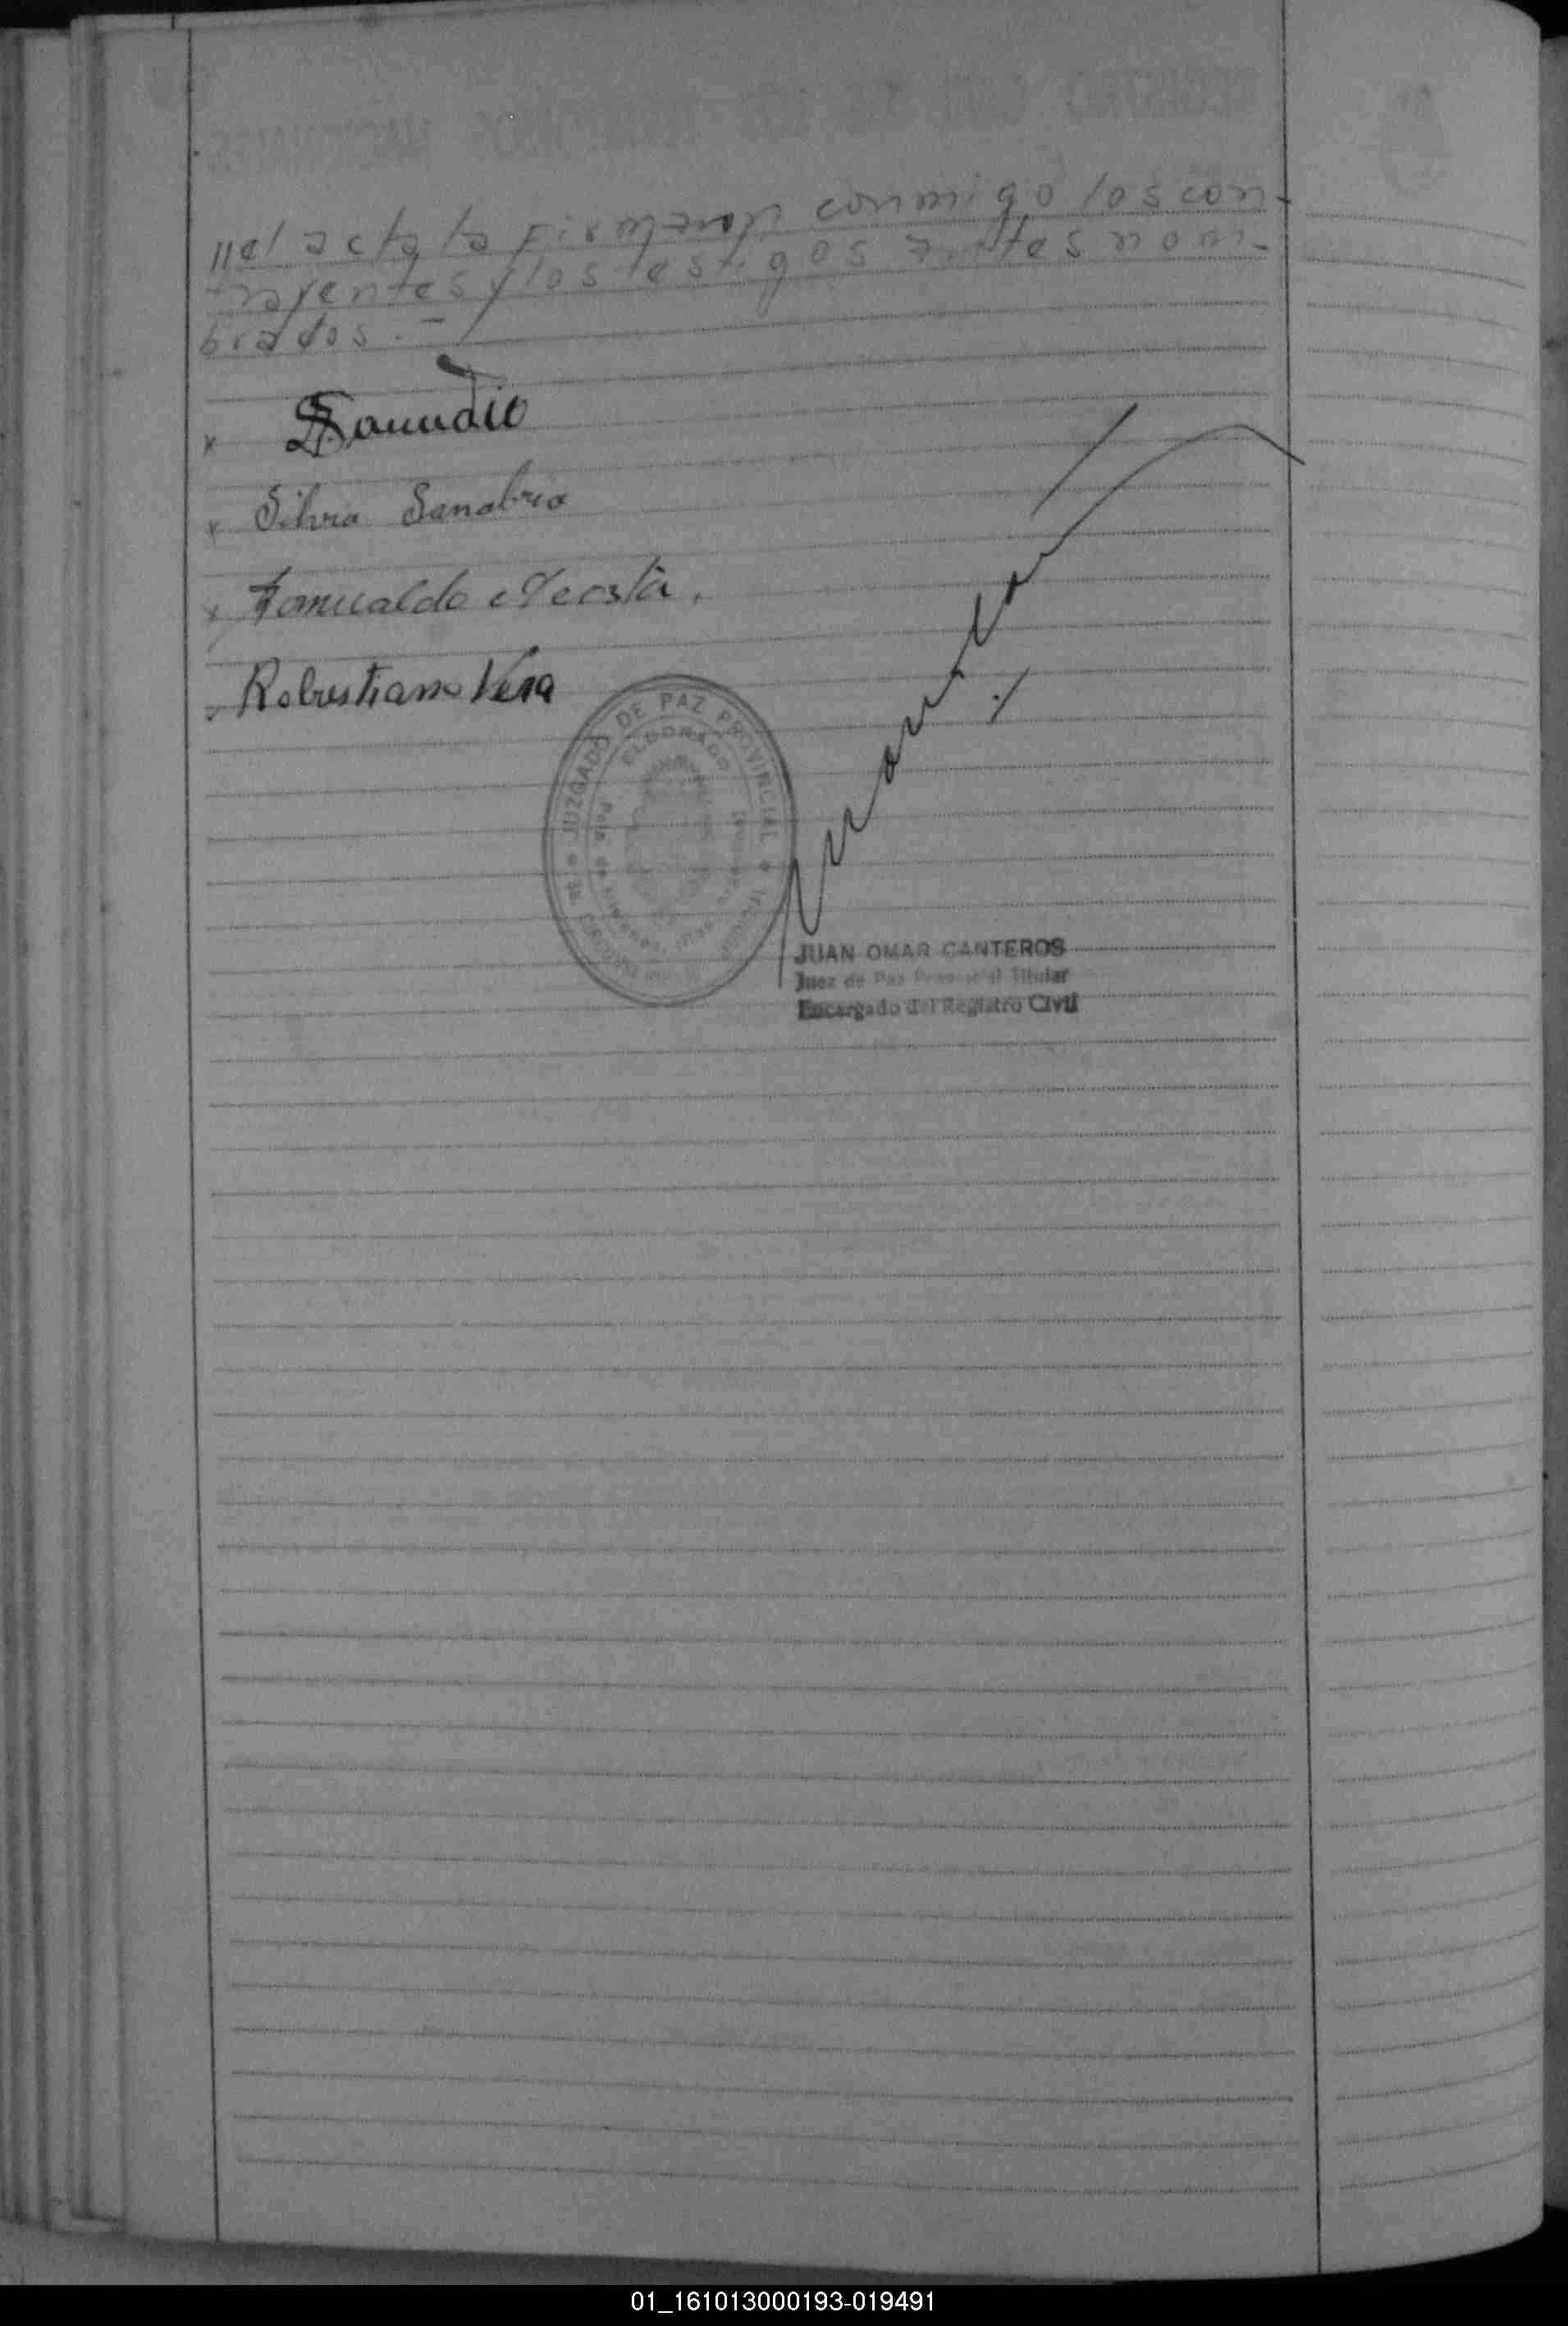 //el acta la firmaron conmigo los con-
trayentes y los testigos antes nom-
brados.-
x Samudio
x Silvia Sanabria
x Romualdo Acosta.
x Robustiano Vera
JUZGADO DE PAZ PROVINCIAL
ELDORADO
JUAN OMAR CANTEROS
Juez de Paz Provincial Titular
Encargado del Registro Civil
01_161013000193-019491